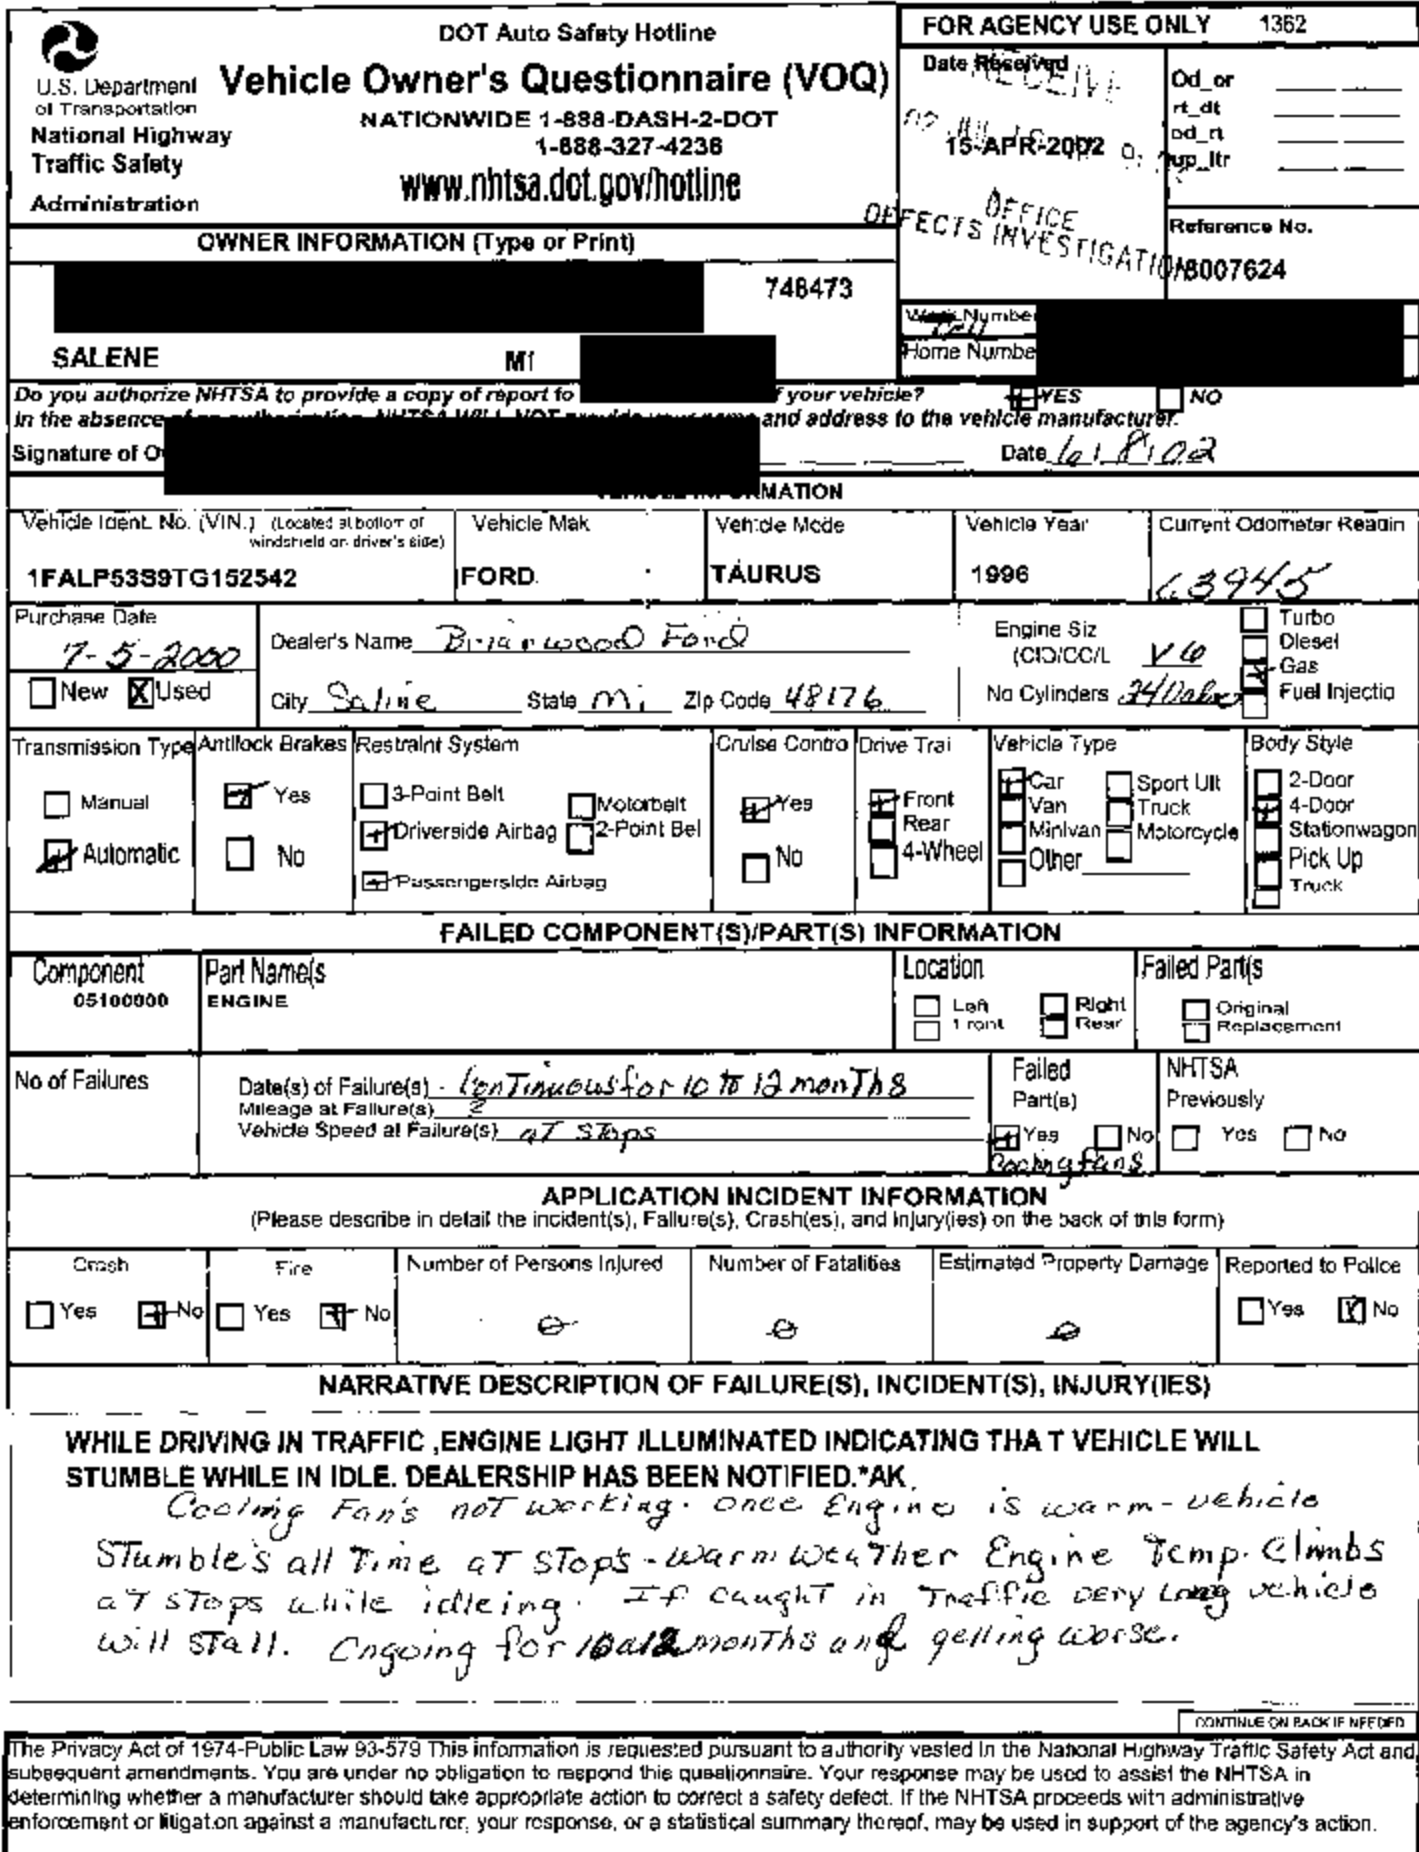 DOT Auto Safety Hotline
Vehicle Owner's Questionnaire (VOQ)
NATIONWIDE 1-888-DASH-2-DOT
1-888-327-4236
www.nhtsa.dot.gov/hotline
U.S. Department
of Transportation
National Highway
Traffic Safety
Administration
FOR AGENCY USE ONLY 1362
Date Received
15-APR-2002
OFFICE
DEFECTS INVESTIGATION
Od_or
rt_dt
od_rt
up_ltr
Reference No.
8007624
OWNER INFORMATION (Type or Print)
748473
SALENE MI
Work Number
Home Numbe
Do you authorize NHTSA to provide a copy of report to f your vehicle? YES NO
In the absence and address to the vehicle manufacturer.
Signature of O Date 6/8/02
MATION
Vehicle Ident. No. (VIN.) (Located at bottom of
windshield on driver's side)
1FALP53S9TG152542
Vehicle Mak
FORD
Vehicle Mode
TAURUS
Vehicle Year
1996
Current Odometer Readin
63945
Purchase Date
7-5-2000
New X Used
Dealer's Name Briarwood Ford
City Saline State Mi Zip Code 48176
Engine Siz
(CID/CC/L V6
No Cylinders
Turbo
Diesel
Gas
Fuel Injectio
Transmission Type
Manual
Automatic
Antilock Brakes
Yes
No
Restraint System
3-Point Belt
Driverside Airbag
Passengerside Airbag
Motorbelt
2-Point Bel
Cruise Contro
Yes
No
Drive Trai
Front
Rear
4-Wheel
Vehicle Type
Car
Van
Minivan
Other
Sport Ult
Truck
Motorcycle
Body Style
2-Door
4-Door
Stationwagon
Pick Up
Truck
FAILED COMPONENT(S)/PART(S) INFORMATION
Component
05100000
Part Name(s
ENGINE
Location
Left Right
Front Rear
Failed Part(s
Original
Replacement
No of Failures
Date(s) of Failure(s) - Continuous for 10 to 12 months
Mileage at Failure(s) ?
Vehicle Speed at Failure(s) at stops
Failed
Part(s)
Yes No
Cooling fans
NHTSA
Previously
Yes No
APPLICATION INCIDENT INFORMATION
(Please describe in detail the incident(s), Failure(s), Crash(es), and Injury(ies) on the back of this form)
Crash
Yes No
Fire
Yes No
Number of Persons Injured
0
Number of Fatalities
0
Estimated Property Damage
0
Reported to Police
Yes No
NARRATIVE DESCRIPTION OF FAILURE(S), INCIDENT(S), INJURY(IES)
WHILE DRIVING IN TRAFFIC ,ENGINE LIGHT ILLUMINATED INDICATING THA T VEHICLE WILL
STUMBLE WHILE IN IDLE. DEALERSHIP HAS BEEN NOTIFIED.*AK
Cooling Fan's not working. once Engine is warm - vehicle
Stumble's all Time at stops - warm weather Engine Temp. Climbs
at stops while idleing. If caught in Traffic very Long vehicle
will stall. Ongoing for 10 to 12 months and getting worse.
CONTINUE ON BACK IF NEEDED
The Privacy Act of 1974-Public Law 93-579 This information is requested pursuant to authority vested in the National Highway Traffic Safety Act and
subsequent amendments. You are under no obligation to respond this questionnaire. Your response may be used to assist the NHTSA in
determining whether a manufacturer should take appropriate action to correct a safety defect. If the NHTSA proceeds with administrative
enforcement or litigation against a manufacturer, your response, or a statistical summary thereof, may be used in support of the agency's action.